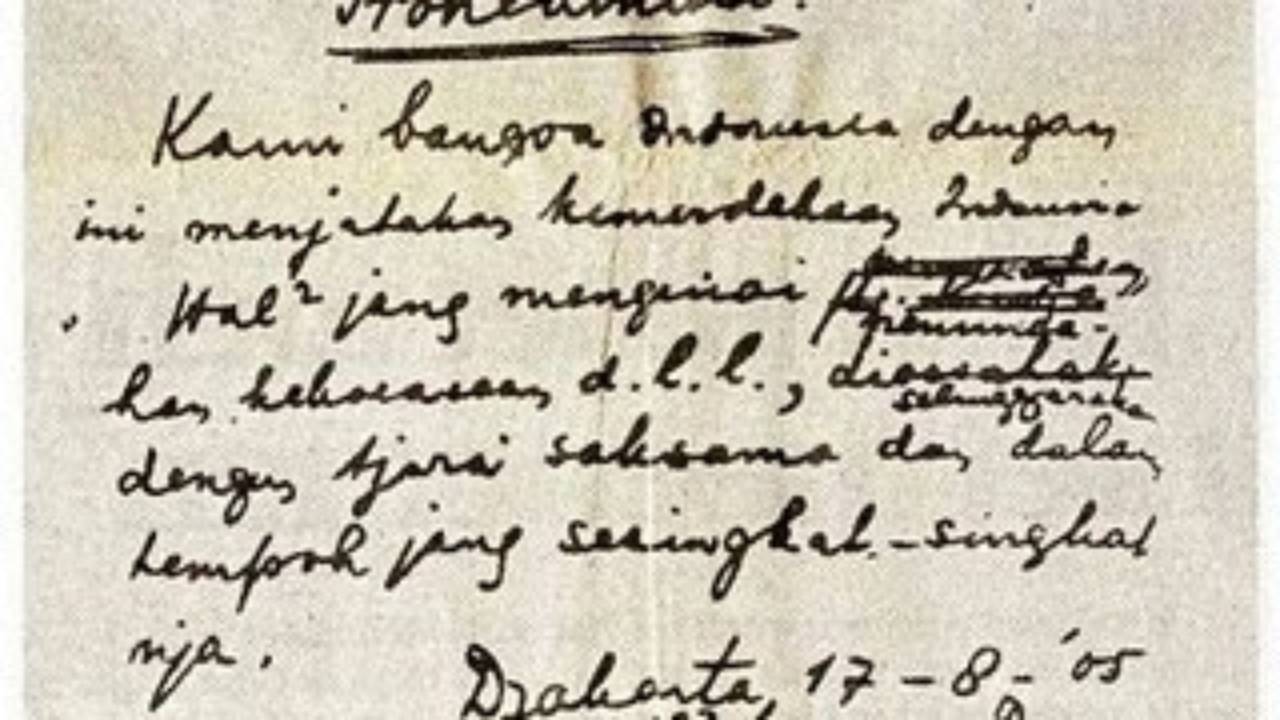 Proklamasi.
Kami bangsa Indonesia dengan
ini menjatakan kemerdekaan Indonesia
. Hal² jang mengenai
peminda-
han kekoeasaan d.l.l., dioesahakan
selenggarakan
dengan tjara saksama dan dalam
tempoh jang sesingkat-singkat
nja.
Djakarta, 17 - 8 - '05